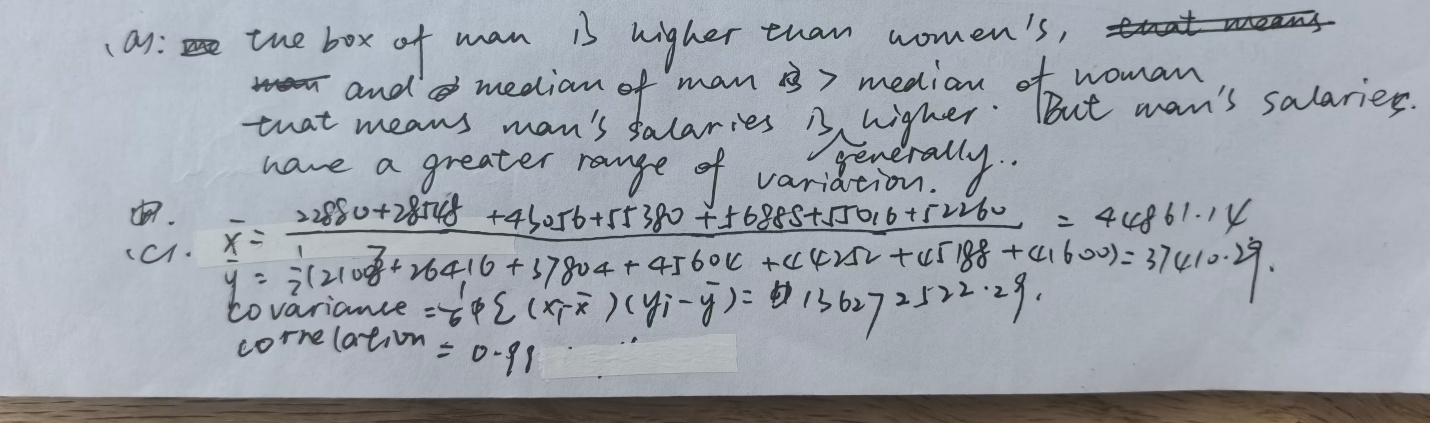 (a): the box of man is higher than women's, that means
man and median of man is > median of woman
that means man's salaries is higher generally.. But man's salaries
have a greater range of variation.
(c). x̄ = 22880+28548+43056+55380+56885+55016+52260 / 7 = 44861.14
ȳ = 1/7(21008+26416+37804+45604+44252+45188+41600)=37410.29.
covariance = 1/6 Σ(xi-x̄)(yi-ȳ)= 136272522.29.
correlation = 0.99